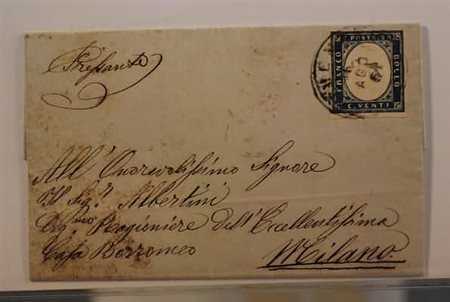 Pressante
FRANCO
POSTE
BOLLO
C. VENTI
AGO
All' Onorevolissimo Signore
Il Sig.r Albertini
Deg.mo Ragioniere dell'Eccellentissima
Casa Borromeo
Milano.